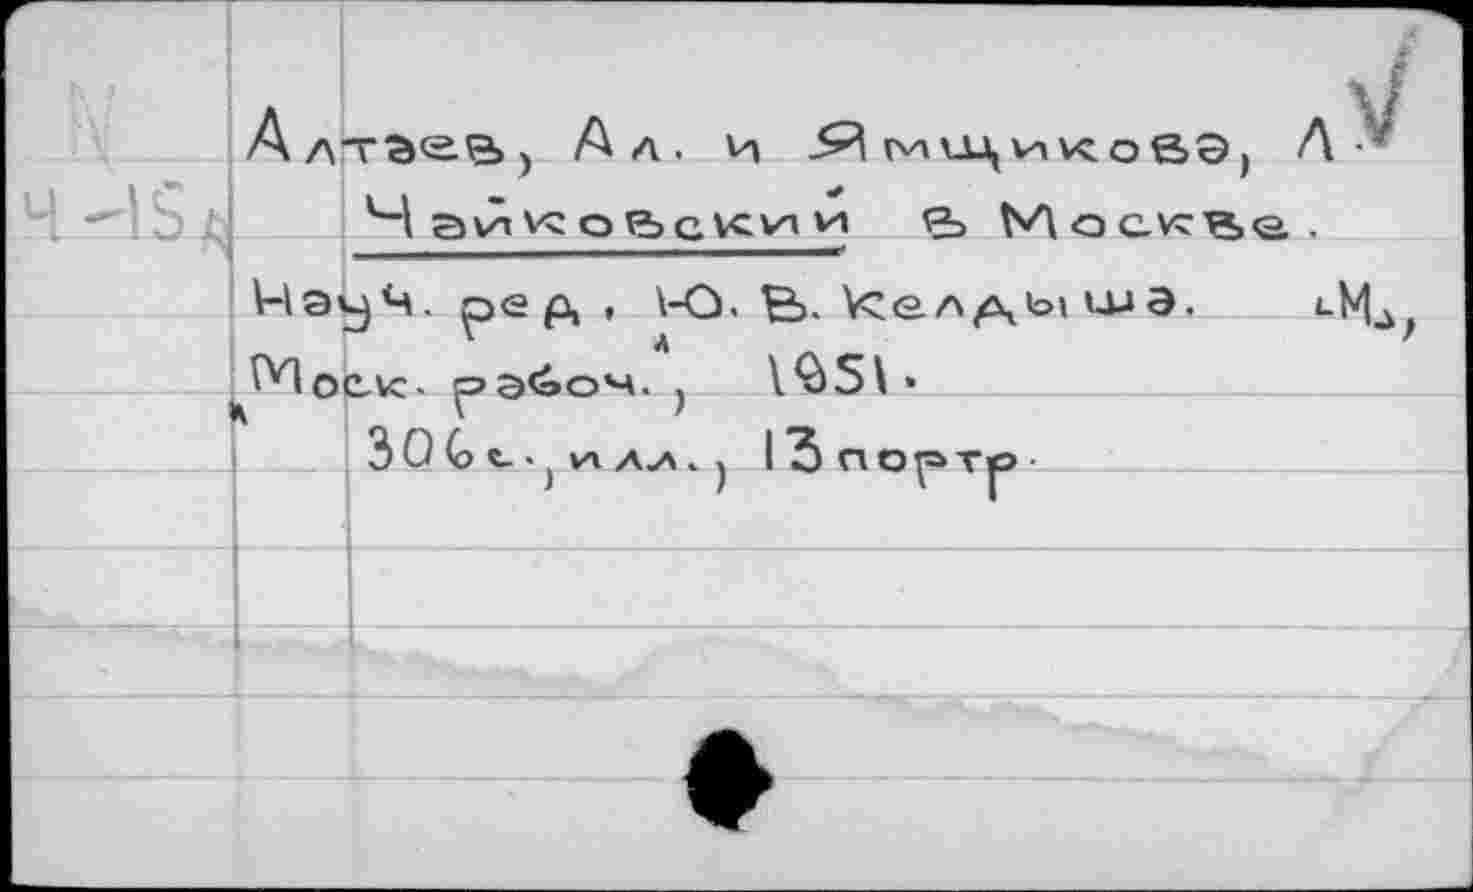 Алтаев, Ал. и Ямщикова, Л. √
Ч-15
Чайковский в Москве.
Науч. ред. Ю. В. Келдыша. [М.],
Моск. рабоч., 1951.
306 с., илл., 13 портр.